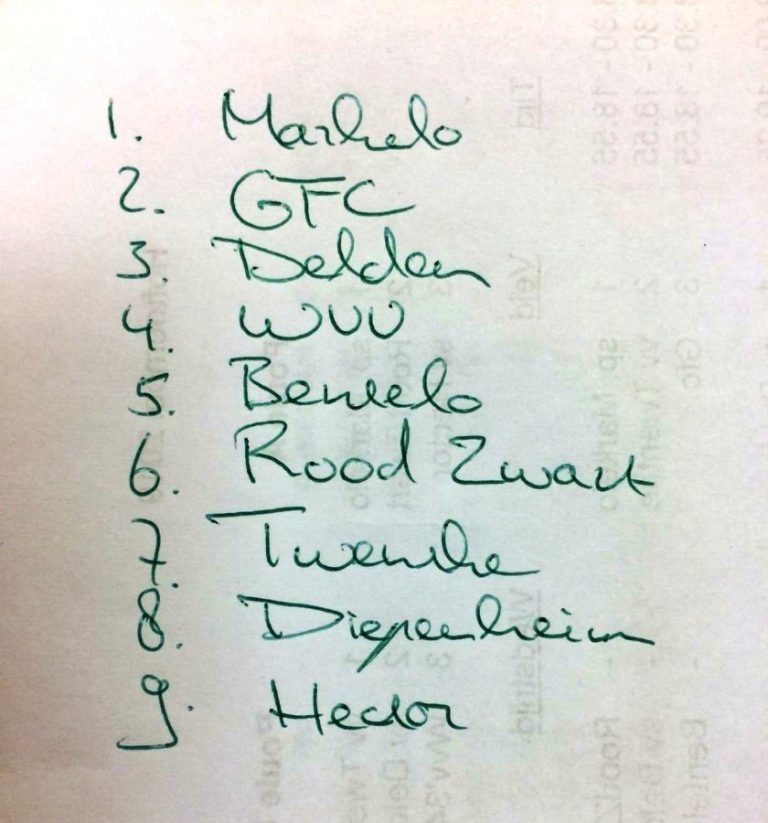 1. Markelo
2. GFC
3. Delden
4. WVV
5. Bentelo
6. Rood Zwart
7. Twenthe
8. Diepenheim
9. Hector